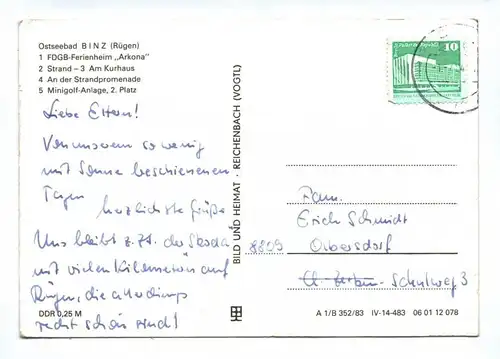 Ostseebad BINZ (Rügen)
1 FDGB-Ferienheim „Arkona"
2 Strand – 3 Am Kurhaus
4 An der Strandpromenade
5 Minigolf-Anlage, 2. Platz
Liebe Eltern!
Von unserem so wenig
mit Sonne beschienenen
Tagen
herzlichste Grüße
Uns bleibt z.Zt. der Skoda
mit vielen Kilometern auf
Rügen, die allerdings
recht schön sind!
DDR 0,25 M
BILD UND HEIMAT · REICHENBACH (VOGTL)
10
Fam.
Erich Schmidt
8809 Olbersdorf
Schulweg 3
A 1/B 352/83 IV-14-483 06 01 12 078